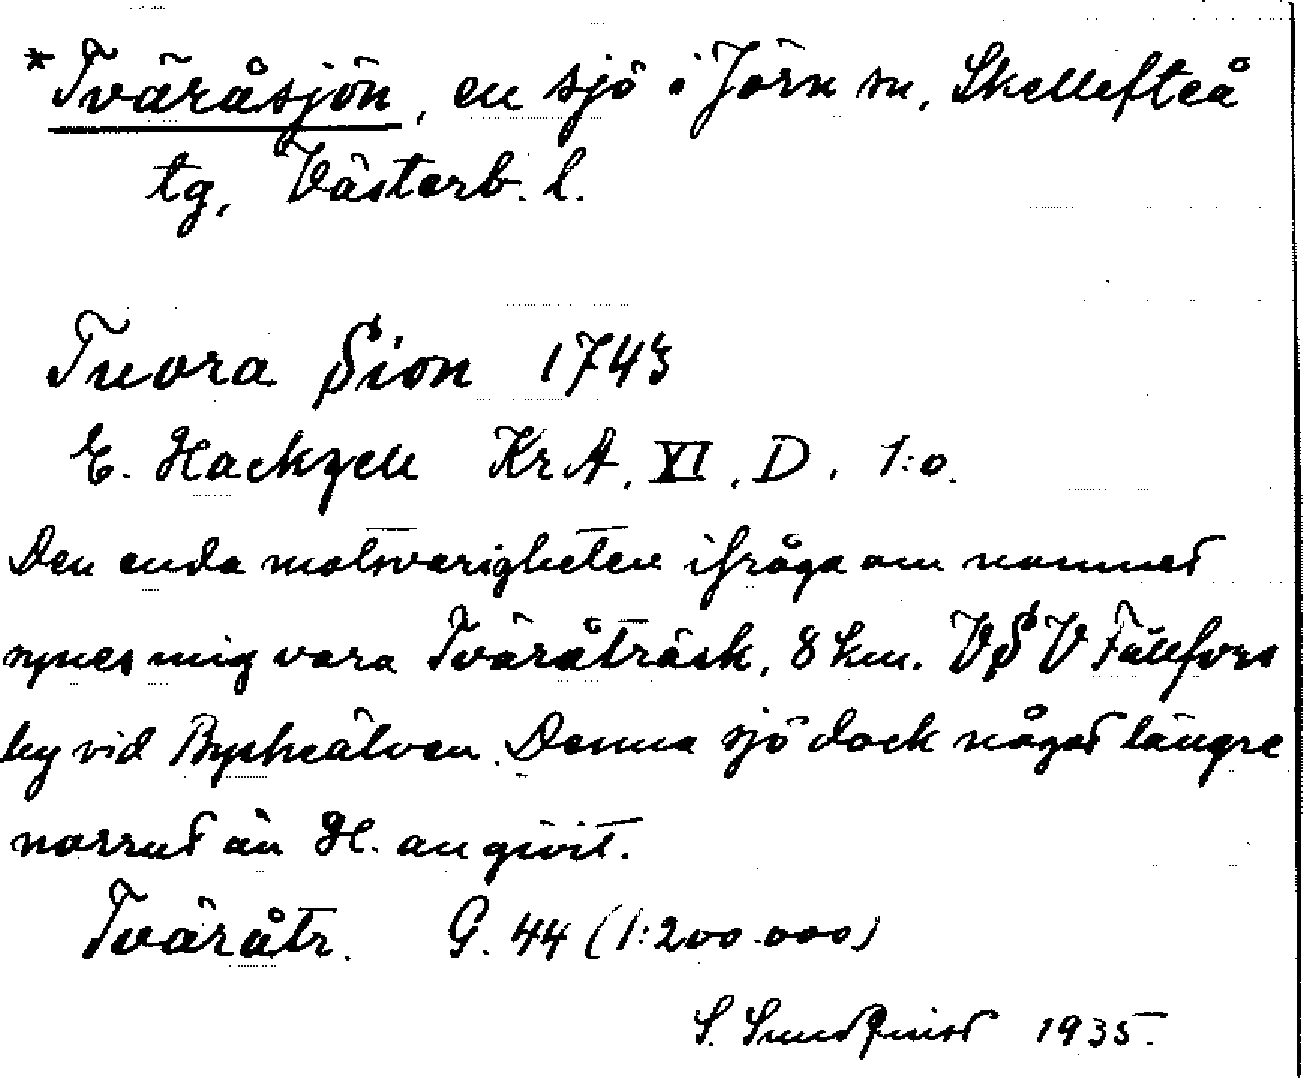 *Tväråsjön, en sjö i Jörn sn, Skellefteå
tg, Västerb. l.
Tuora Sion 1743
E. Hackzell KrA, XI, D, 1:o.
Den enda motsvarigheten ifråga om namnet
synes mig vara Tväråträsk, 8 km. VSV Fällfors
by vid Byskeälven. Denna sjö dock något längre
norrut än H. angivit.
Tväråtr. G. 44 (1:200.000)
S. Sundquist 1935.